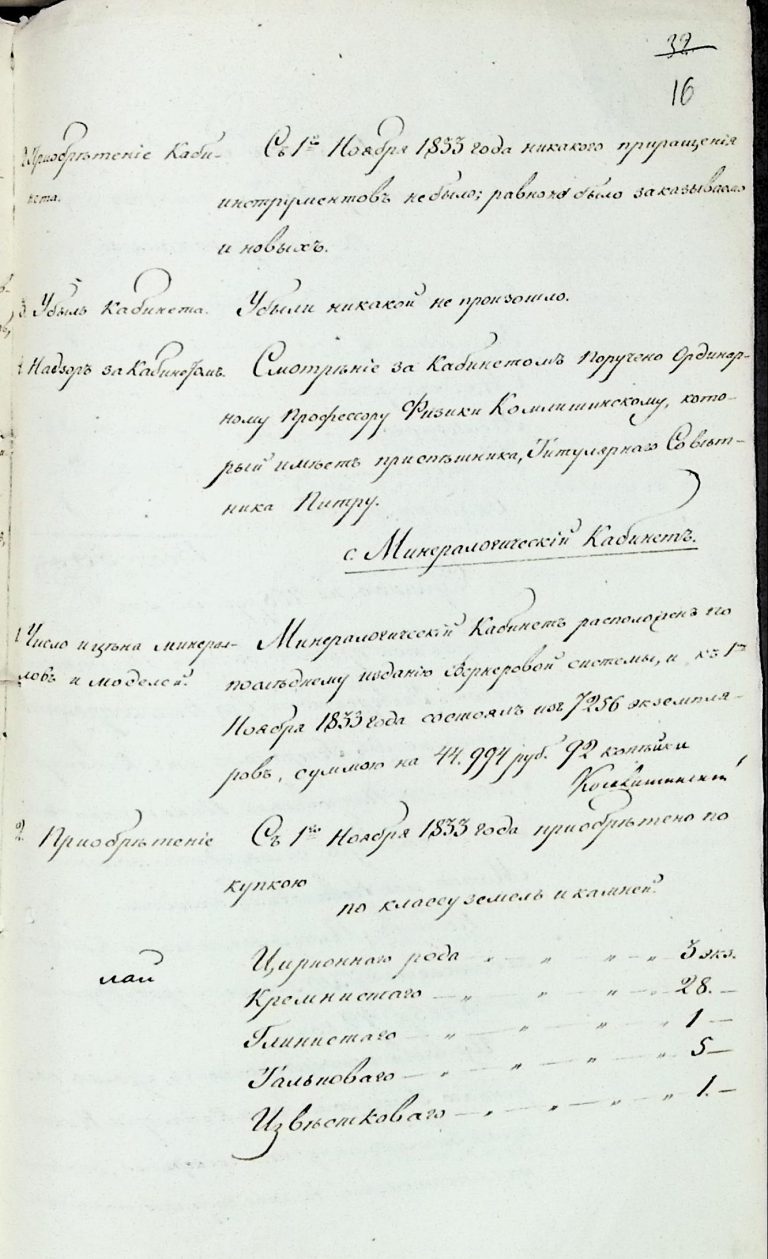 32
16
2. Приобрѣтеніе Каби-
нета.
Съ 1го Ноября 1833 года никакого приращенія
инструментовъ не было; равно не было заказываемо
и новыхъ.
3. Убыль Кабинета.
Убыли никакой не произошло.
4. Надзоръ за Кабинетомъ.
Смотрѣніе за Кабинетомъ поручено Ординар-
ному Профессору Физики Комлишинскому, кото-
рый имѣетъ приспѣшника, Титулярнаго Совѣт-
ника Питру.
с. Минералогическій Кабинетъ.
1. Число и цѣна минера-
ловъ и моделей.
Минералогическій Кабинетъ расположенъ по
послѣднему изданію Вернеровой системы, и къ 1му
Ноября 1833 года состоялъ изъ 7256 экземпля-
ровъ, суммою на 44.994 руб. 92 копѣйки
Комлишинскій
2. Приобрѣтеніе
Съ 1го Ноября 1833 года приобрѣтено по
купкою
по классу земель и камней.
Цирконнаго рода — „ — „ — „ — „ — 3 экз.
Кремнистаго — „ — „ — „ — „ — 28. —
Глинистаго — „ — „ — „ — „ — 1 —
Тальковаго — „ — „ — „ — „ — 5 —
Известковаго — „ — „ — „ — „ — 1. —